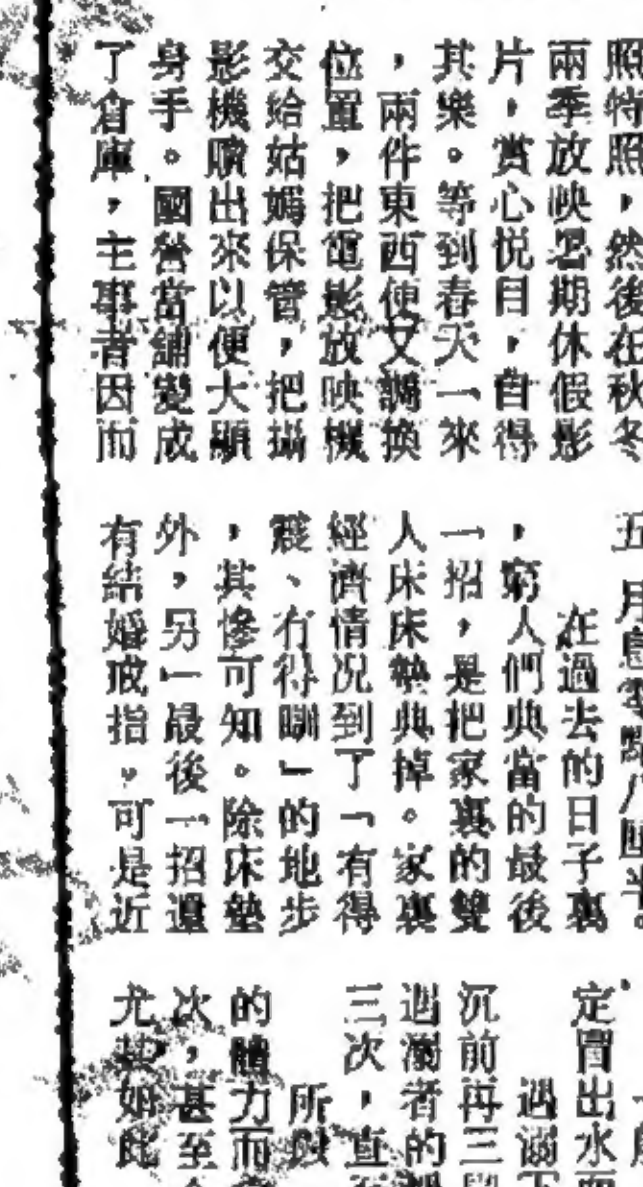 照特照，然後在秋冬
兩季放映忽期休假影
片，賞心悅目，自得
其樂。等到春天一來
，兩件東西便又調換
位置，把電影放映機
交給姑媽保管，把攝
影機贖出來以便大顯
身手。國營當舖變成
了倉庫，主事者因而
五月息零點八
在過去的日子裏
，窮人們典當的最後
一招，是把家裏的雙
人床床墊典掉。家裏
經濟情況到了「有得
震、冇得瞓」的地步
，其慘可知。除床墊
外，另一最後一招還
有結婚戒指。可是近
定冒出水
遇溺
沉前再三
遇溺者的
三次，直
所
的體力而
次，甚至
尤其如此